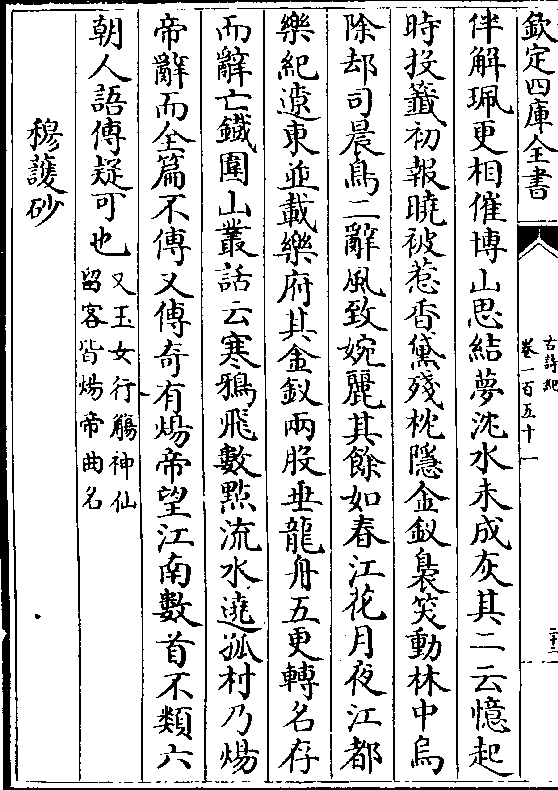 欽定四庫全書
古詩紀
卷一百五十一
伴解珮更相催博山思結夢沈水未成灰其二云憶起
時投籤初報曉被惹香黛殘枕隱金釵裊笑動林中烏
除却司晨鳥二辭風致婉麗其餘如春江花月夜江都
樂紀遼東並載樂府其金釵兩股垂龍舟五更轉名存
而辭亡鐵圍山叢話云寒鴉飛數點流水遶孤村乃煬
帝辭而全篇不傳又傳奇有煬帝望江南數首不類六
朝人語傳疑可也又玉女行觴神仙
留客皆煬帝曲名
穆護砂